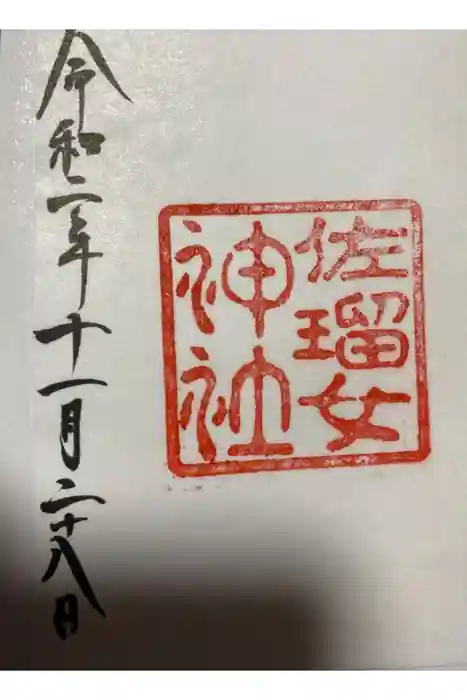 佐瑠女
神社
令和二年十一月二十八日